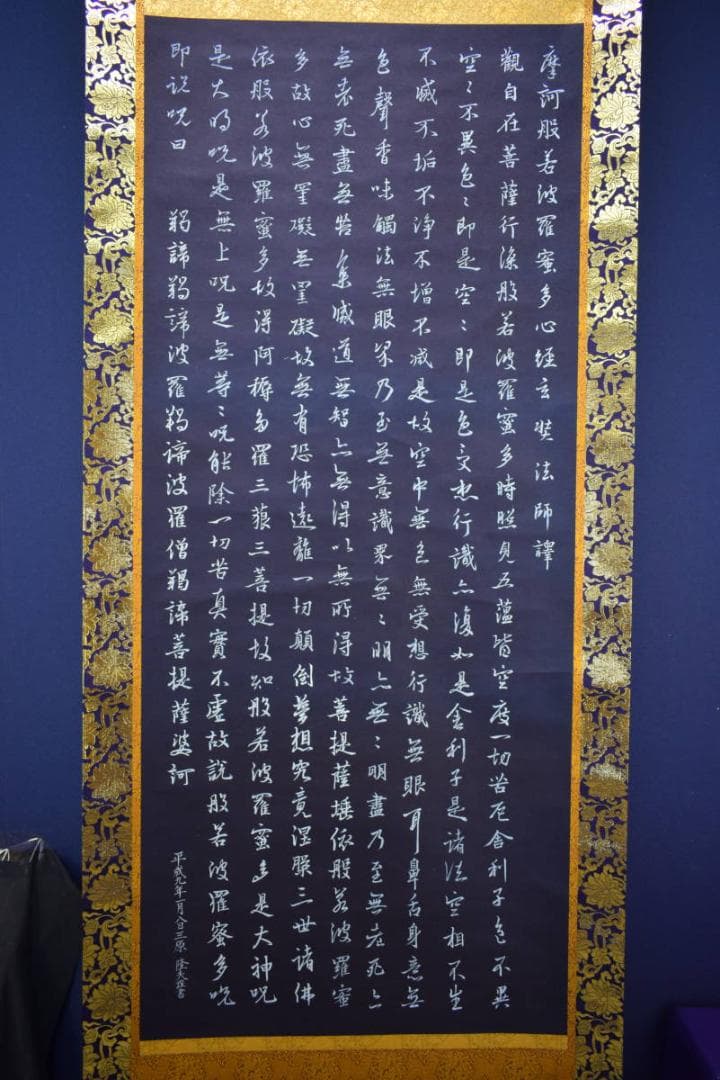 摩訶般若波羅蜜多心經玄奘法師譯
觀自在菩薩行深般若波羅蜜多時照見五蘊皆空度一切苦厄舍利子色不異
空〻不異色〻即是空〻即是色受想行識亦復如是舍利子是諸法空相不生
不滅不垢不淨不增不減是故空中無色無受想行識無眼耳鼻舌身意無
色聲香味觸法無眼界乃至無意識界無〻明亦無〻明盡乃至無老死亦
無老死盡無苦集滅道無智亦無得以無所得故菩提薩埵依般若波羅蜜
多故心無罣礙無罣礙故無有恐怖遠離一切顛倒夢想究竟涅槃三世諸佛
依般若波羅蜜多故得阿耨多羅三藐三菩提故知般若波羅蜜多是大神呪
是大明呪是無上呪是無等〻呪能除一切苦真實不虛故說般若波羅蜜多呪
即説呪曰 羯諦羯諦波羅羯諦波羅僧羯諦菩提薩婆訶
平成九年一月八日三原隆